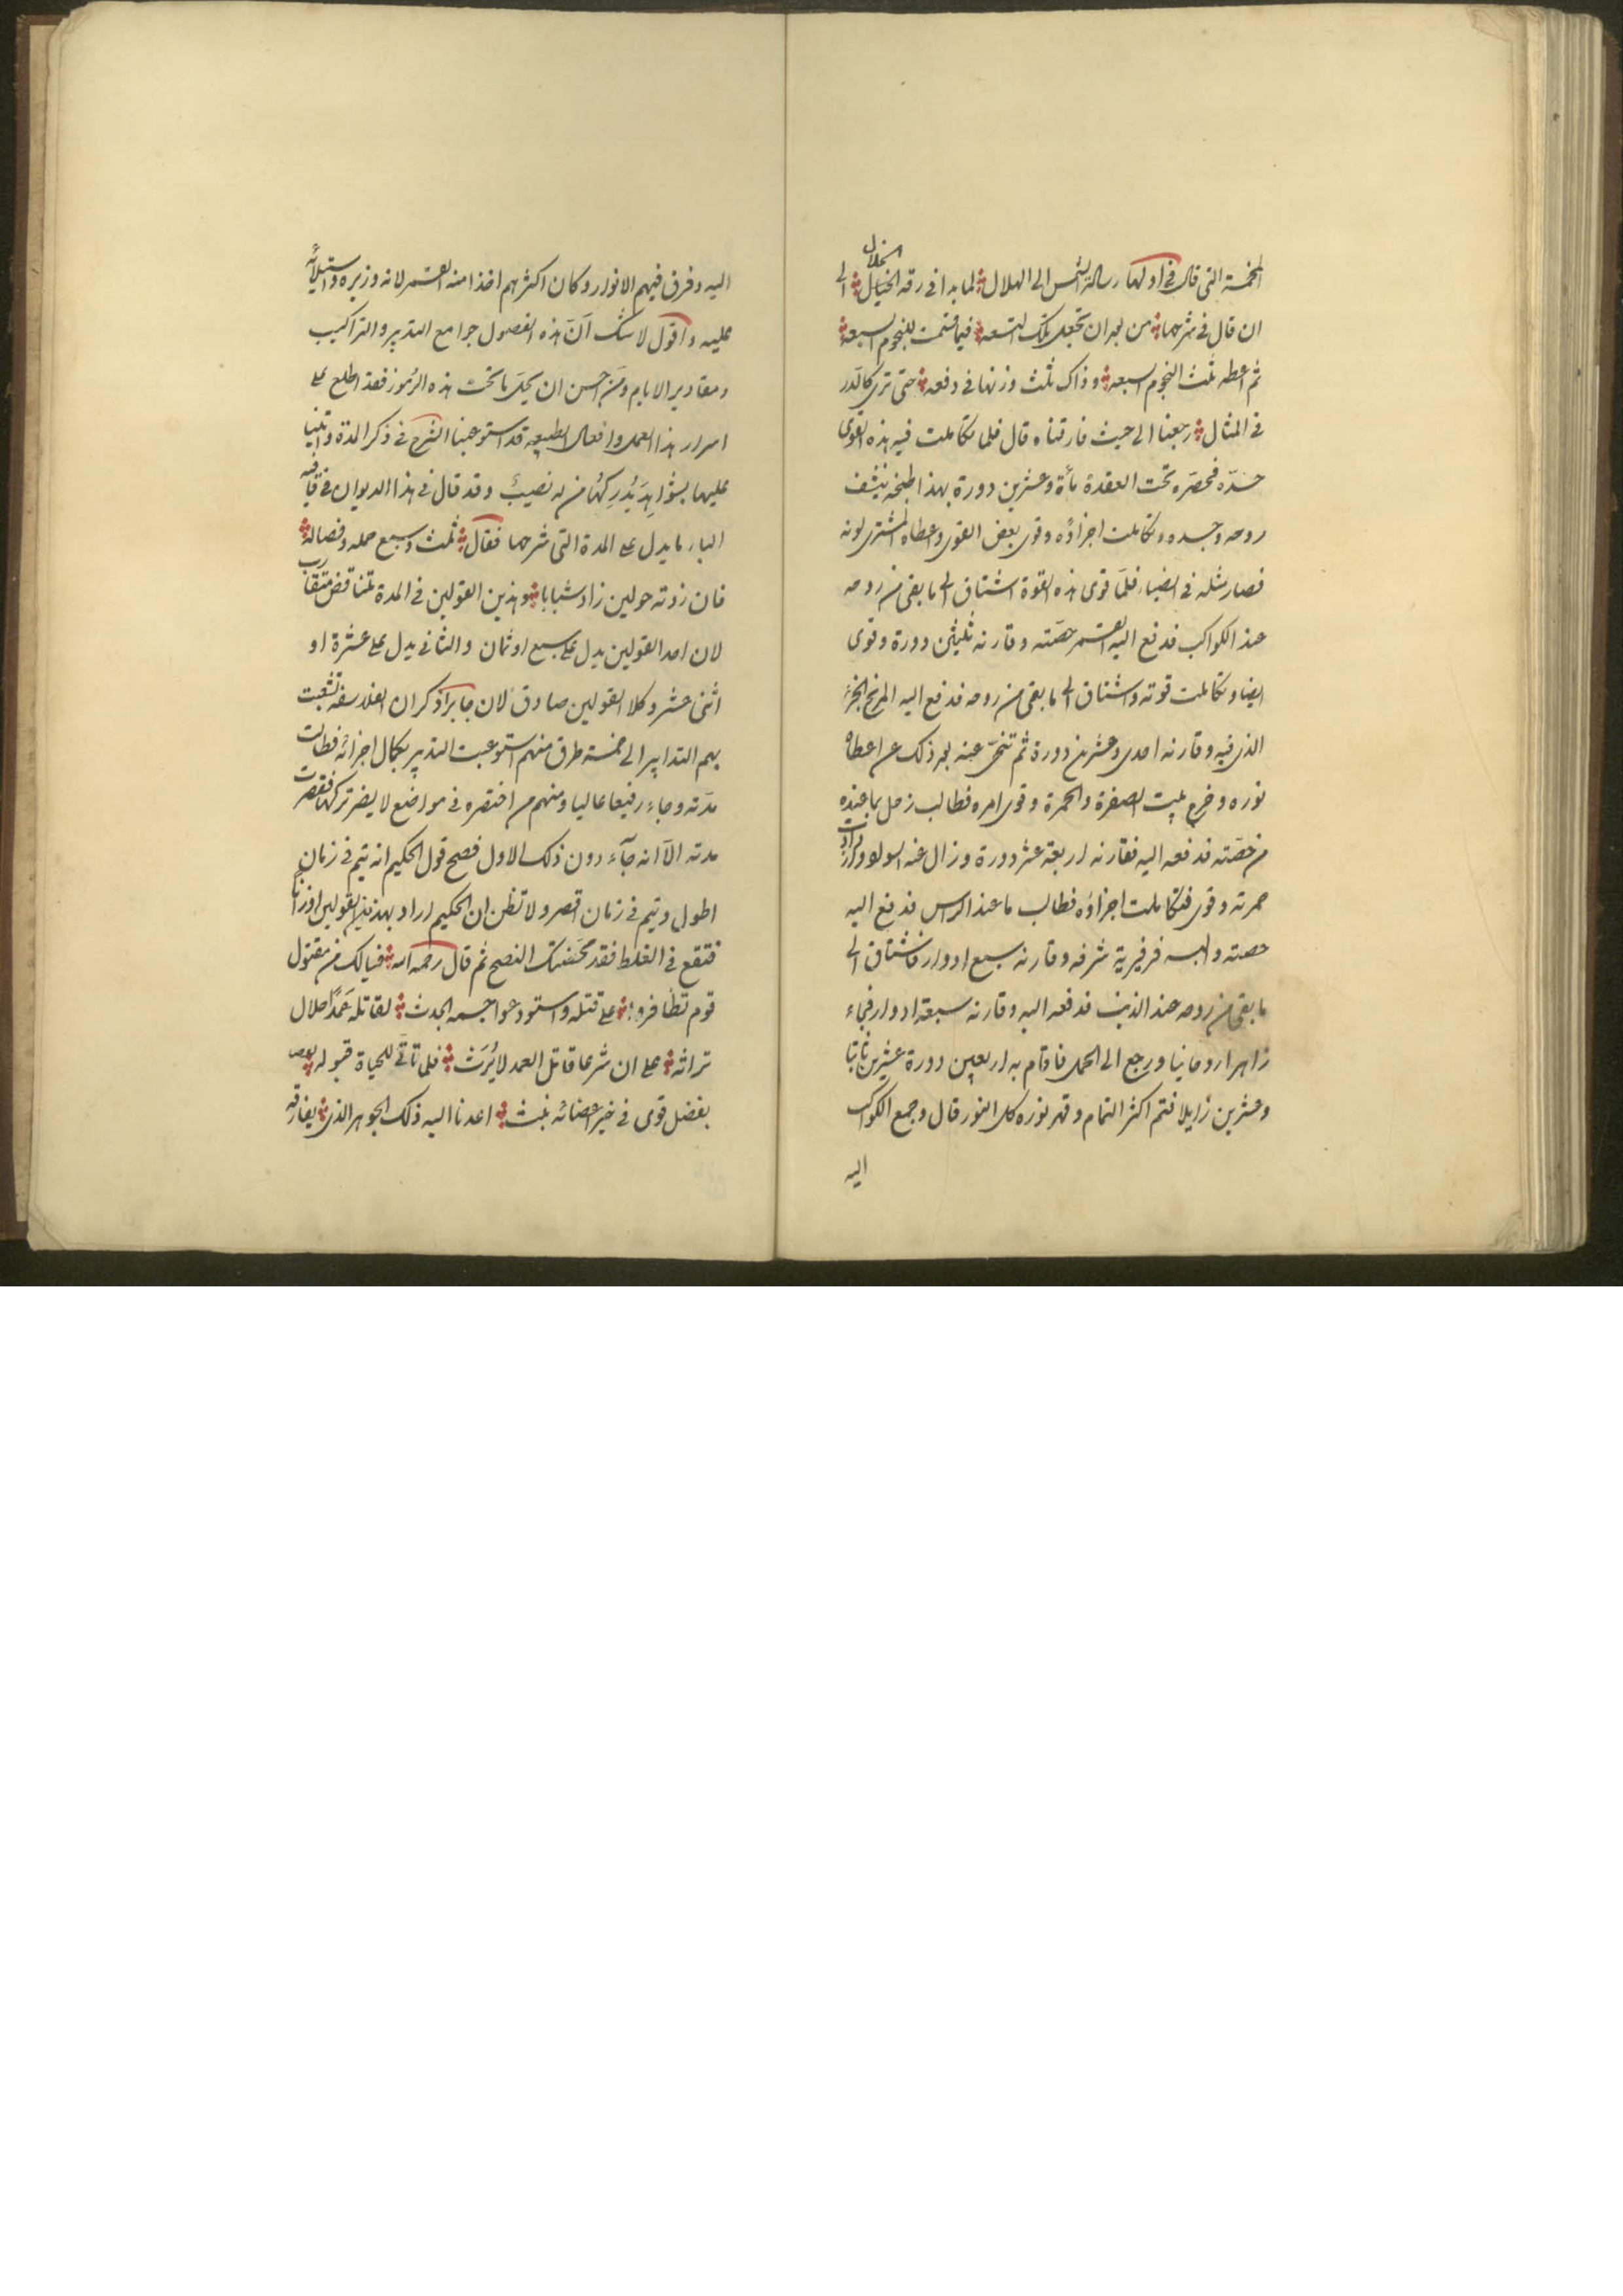 الخلال
المخمسة التى قال فى اولها رسالة الشمس الى الهلال لما بدا فى رقة الخيال الى
ان قال فى شرحها من بعد ان تجعل تلك التسعه فيما قسمت للنجوم السبعه
ثم اعطه ثلث النجوم السبعه وذاك ثلث وزنها فى دفعه حتى ترى كالبدر
فى المثال رجعنا الى حيث فارقناه قال فلما تكاملت فيه هذه القوى
تحت العقدة مأة وعشرين دورة بهذا طبخه ينشف
روحه وجسده وتكاملت اجزاؤه وقوى بعض القوى واعطاه المشترى لونه
فصار مثله فى الضياء فلما قوى هذه القوة اشتاق الى ما بقى من روحه
عند الكواكب فدفع اليه القمر حصته وقارنه ثلثين دورة وقوى
ايضا وتكاملت قوته واشتاق الى ما بقى من روحه فدفع اليه المريخ الجزء
الذى فيه وقارنه احدى وعشرين دورة ثم تنحى عنه بعد ذلك عن اعطاه
نوره وخرج بين الصفرة والحمرة وقوى امره فطالب زحل بما عنده
من حصته فدفعه اليه فقارنه اربعة عشر دورة وزال عنه السواد وزادت
حمرته وقوى فتكاملت اجزاؤه فطالب ما عند الراس فدفع اليه
حصته والبسه فرفيرية شرفه وقارنه سبع ادوار فاشتاق الى
ما بقى من روحه عند الذنب فدفعه اليه وقارنه سبعة ادوار فجاء
زاهرا روحانيا ورجع الى الحمل فاقام به اربعين دورة عشرين ثابتا
وعشرين زايلا فتم اكثر التمام وقهر نوره كل النور قال وجمع الكواكب
اليه
اليه وفرق فيهم الانوار وكان اكثرهم اخذا منه القمر لانه وزيره واستيلائه
عليه واقول لا شك ان هذه الفصول جوامع التدبير والتراكيب
ومقادير الايام ومن احسن ان يحل ما تحت هذه الرموز فقد اطلع على
اسرار هذا العمل وافعال الطبيعه قد استوعبنا الشرح فى ذكر المدة واتينا
عليها بشواهد يدركها من له نصيب وقد قال فى هذا الديوان فى قافية
الباء ما يدل على المدة التى شرحها فقال ثلث وسبع حمله وفصاله
فان زدته حولين زاد شبابا وهذين القولين فى المدة تناقض متقارب
لان احد القولين يدل على سبع او ثمان والثانى يدل على عشرة او
اثنى عشر وكلا القولين صادق لان جابرا ذكر ان الفلاسفه تشعبت
بهم التدابير الى خمسة طرق منهم استوعبت التدبير بكمال اجزائه فطالت
مدته وجاء رفيعا عاليا ومنهم من اختصره فى مواضع لا يضر تركها فقصرت
مدته الا انه جاء دون ذلك الاول فصح قول الحكيم انه يتم فى زمان
اطول ويتم فى زمان اقصر ولا تظن ان الحكيم اراد بهذين القولين اوزانا
فتقع فى الغلط فقد محضتك النصح ثم قال رحمه الله فيالك من مقتول
قوم تظافروا على قتله واستودعوا جسمه الجدث لقاتله عمدا حلال
تراثه على ان شرعا قاتل العمد لا يرث فلما تأتى للحياة قبوله
بفضل قوى فى خير اعضائه نبث اعدنا اليه ذلك الجوهر الذى يفارقه